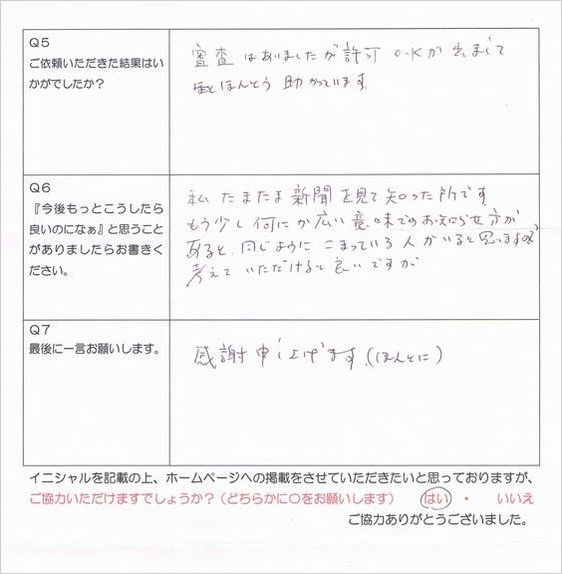 Q5
ご依頼いただきた結果はい
かがでしたか？
審査はありましたが許可O.Kが出まして
ほんとう助かっています
Q6
『今後もっとこうしたら
良いのになぁ』と思うこと
がありましたらお書きく
ださい。
私たまたま新聞を見て知った所です
もう少し何にか広い意味でのお知らせ方が
あると、同じようにこまっている人がいると思いますので
考えていただけると良いですが
Q7
最後に一言お願いします。
感謝申し上げます。(ほんとに)
イニシャルを記載の上、ホームページへの掲載をさせていただきたいと思っておりますが、
ご協力いただけますでしょうか？（どちらかに〇をお願いします） はい ・ いいえ
ご協力ありがとうございました。